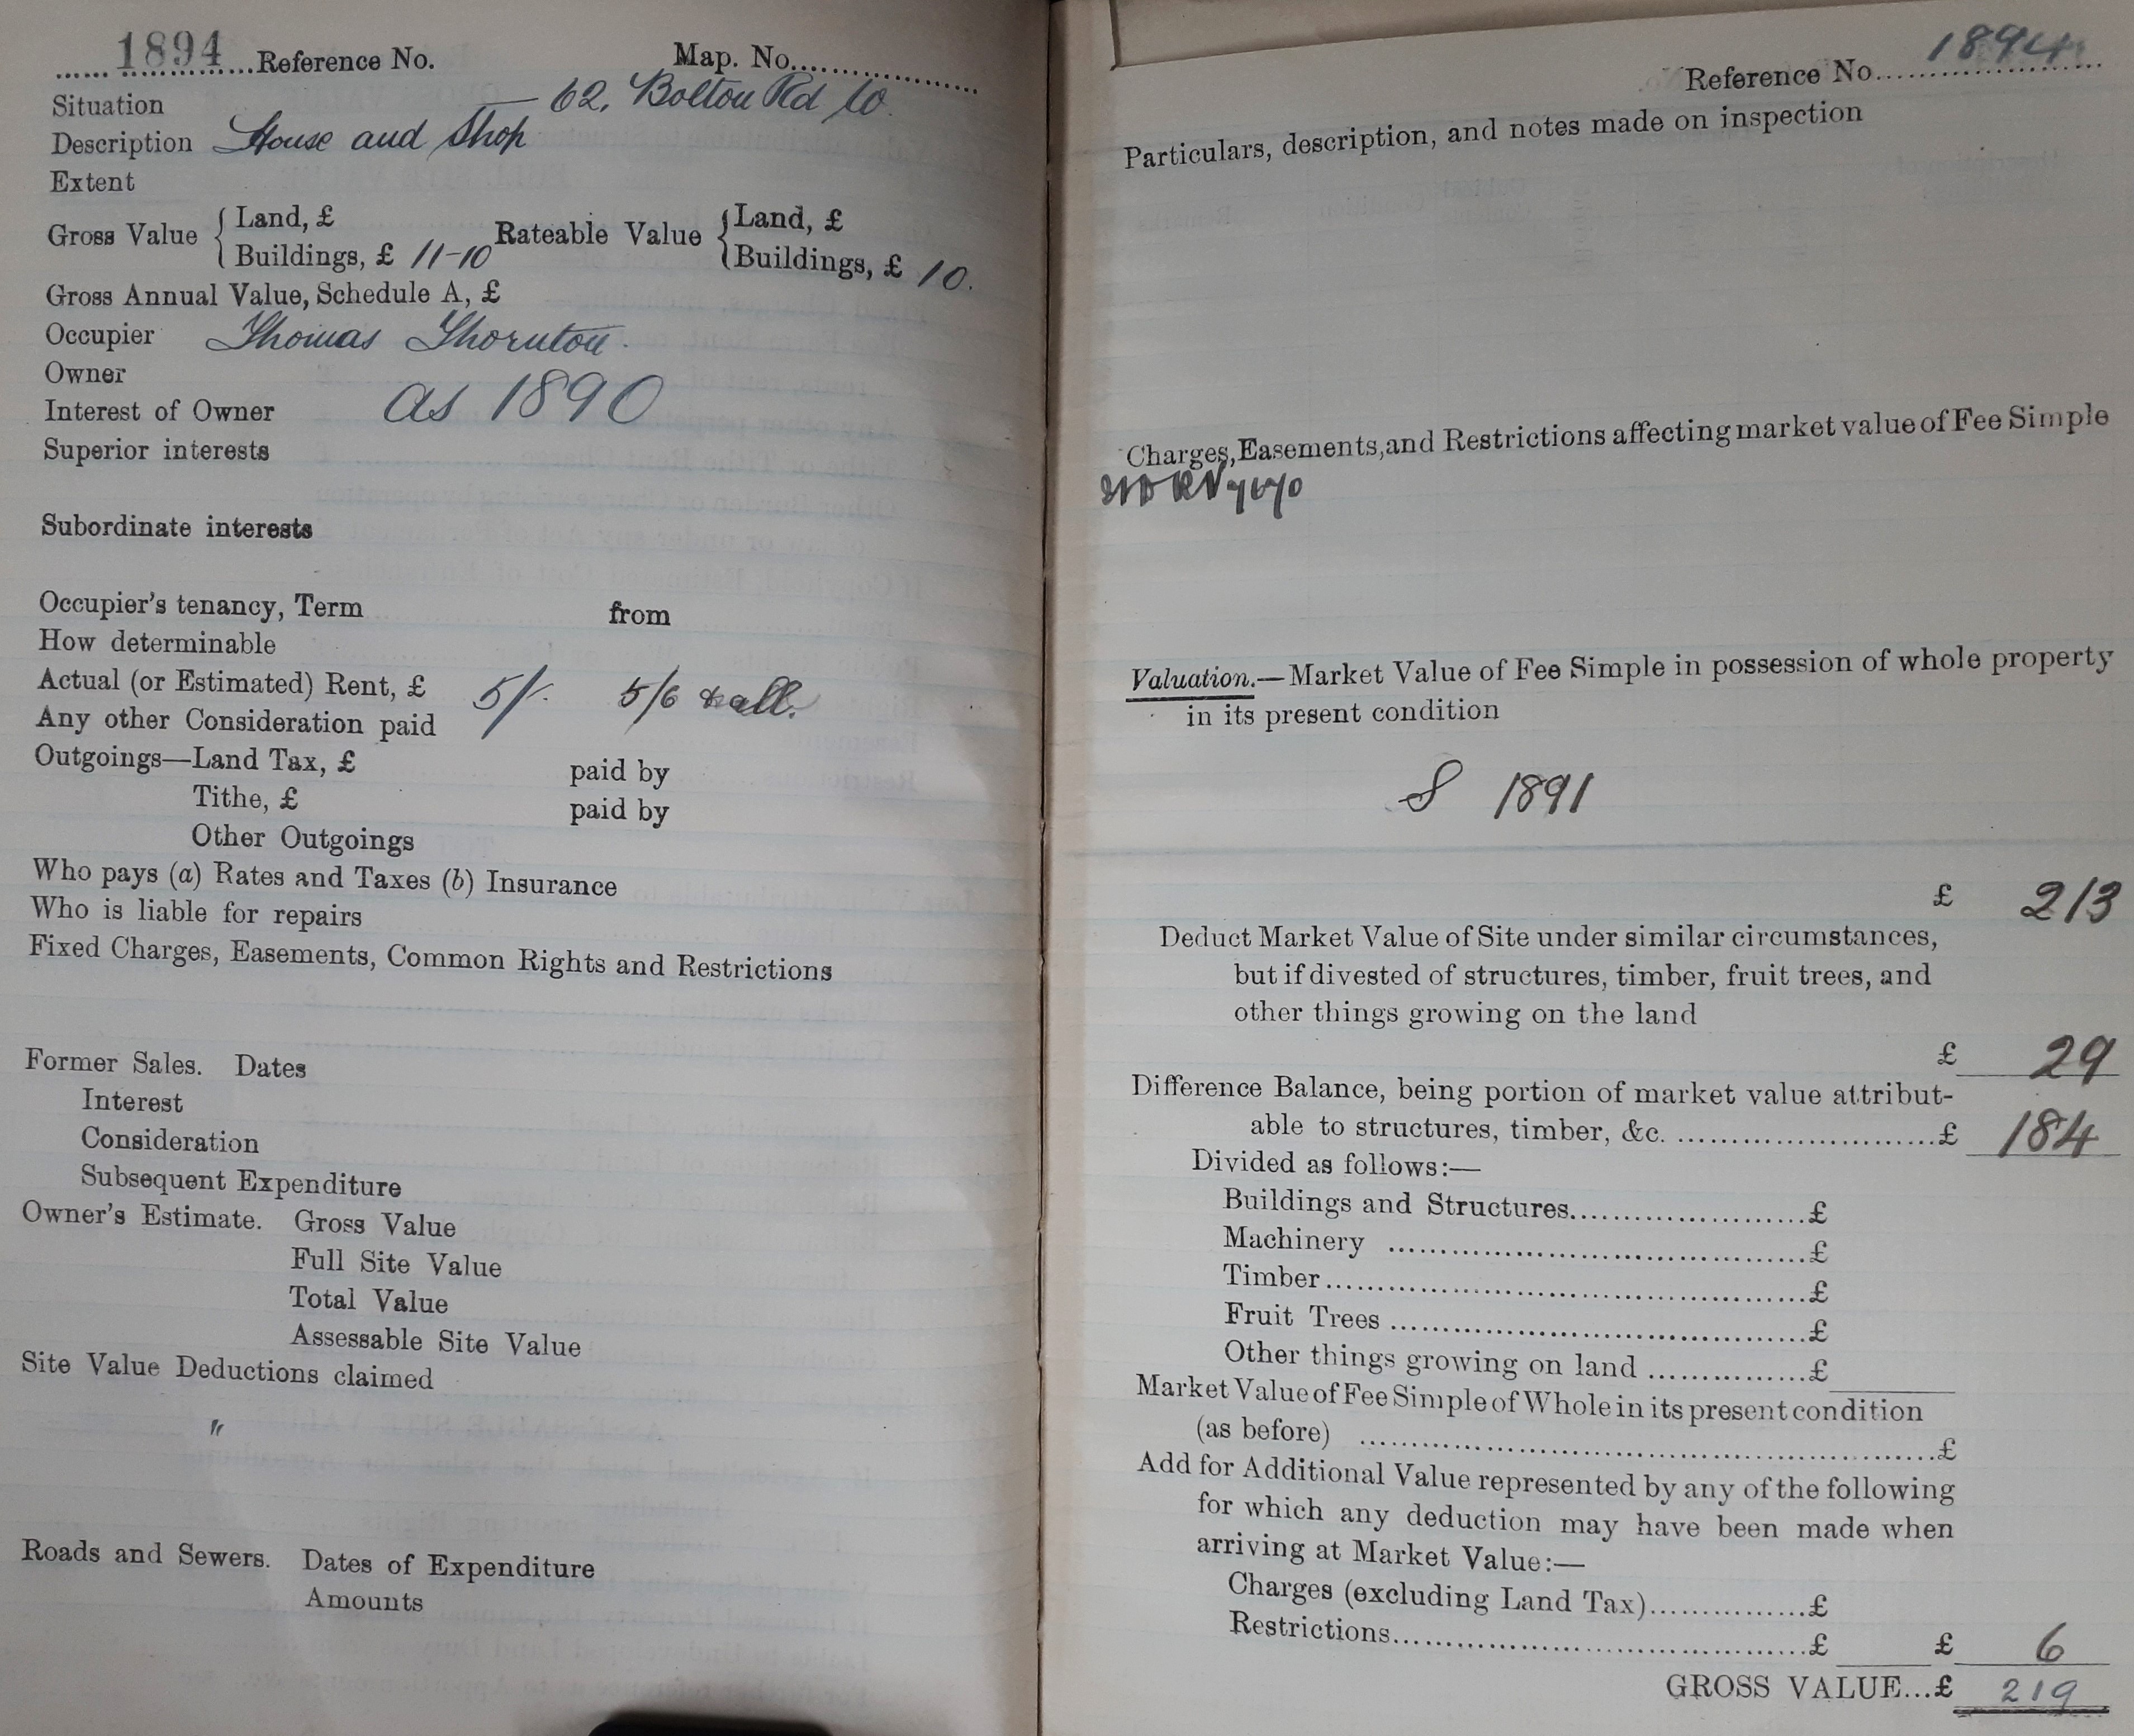 1894 Reference No. Map. No.
Situation 62, Bolton Rd
Description House and Shop
Extent
Gross Value { Land, £ Rateable Value { Land, £
Buildings, £ 11-10 Buildings, £ 10.
Gross Annual Value, Schedule A, £
Occupier Thomas Thornton.
Owner
Interest of Owner as 1890
Superior interests
Subordinate interests
Occupier's tenancy, Term from
How determinable
Actual (or Estimated) Rent, £ 5/- 5/6 all.
Any other Consideration paid
Outgoings—Land Tax, £ paid by
Tithe, £ paid by
Other Outgoings
Who pays (a) Rates and Taxes (b) Insurance
Who is liable for repairs
Fixed Charges, Easements, Common Rights and Restrictions
Former Sales. Dates
Interest
Consideration
Subsequent Expenditure
Owner's Estimate. Gross Value
Full Site Value
Total Value
Assessable Site Value
Site Value Deductions claimed
"
Roads and Sewers. Dates of Expenditure
Amounts
Reference No. 1894
Particulars, description, and notes made on inspection
Charges, Easements, and Restrictions affecting market value of Fee Simple
Valuation.—Market Value of Fee Simple in possession of whole property
in its present condition
S 1891
£ 213
Deduct Market Value of Site under similar circumstances,
but if divested of structures, timber, fruit trees, and
other things growing on the land
£ 29
Difference Balance, being portion of market value attribut-
able to structures, timber, &c. £ 184
Divided as follows:—
Buildings and Structures £
Machinery £
Timber £
Fruit Trees £
Other things growing on land £
Market Value of Fee Simple of Whole in its present condition
(as before) £
Add for Additional Value represented by any of the following
for which any deduction may have been made when
arriving at Market Value:—
Charges (excluding Land Tax) £
Restrictions £ £ 6
GROSS VALUE...£ 219